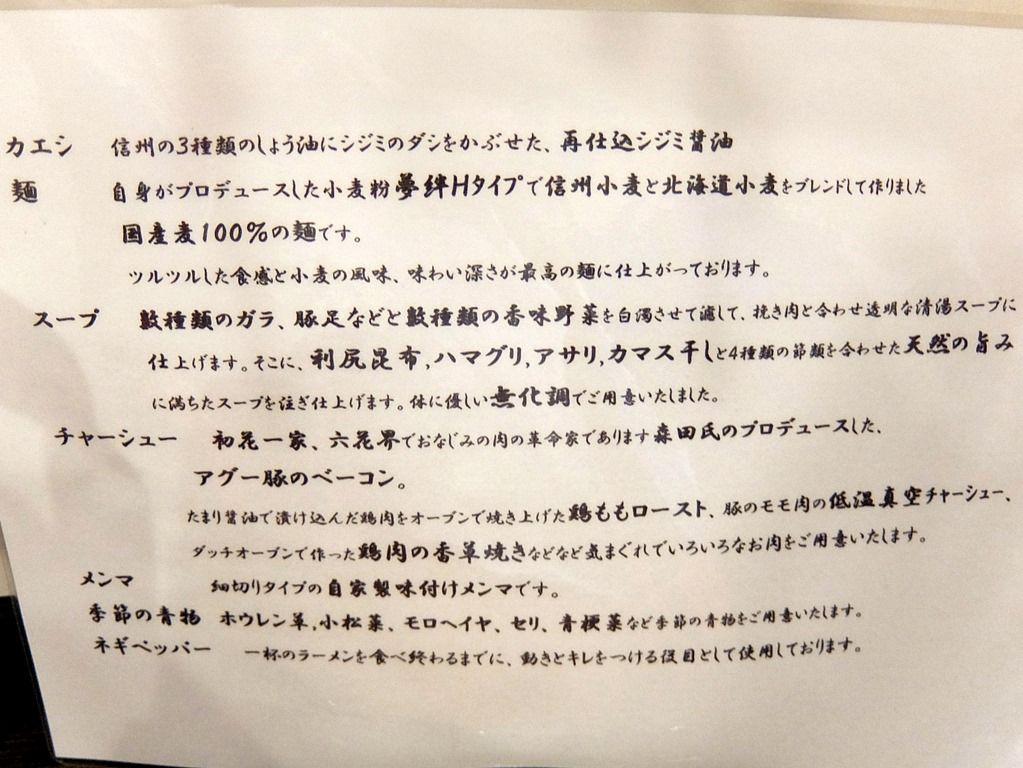 カエシ 信州の3種類のしょう油にシジミのダシをかぶせた、再仕込シジミ醤油
麺 自身がプロデュースした小麦粉夢絆Hタイプで信州小麦と北海道小麦をブレンドして作りました
国産麦100%の麺です。
ツルツルした食感と小麦の風味、味わい深さが最高の麺に仕上がっております。
スープ 数種類のガラ、豚足などと数種類の香味野菜を白濁させて濾して、挽き肉と合わせ透明な清湯スープに
仕上げます。そこに、利尻昆布,ハマグリ,アサリ,カマス干しと4種類の節類を合わせた天然の旨み
に満ちたスープを注ぎ仕上げます。体に優しい無化調でご用意いたしました。
チャーシュー 初花一家、六花界でおなじみの肉の革命家であります森田氏のプロデュースした、
アグー豚のベーコン。
たまり醤油で漬け込んだ鶏肉をオーブンで焼き上げた鶏ももロースト、豚のモモ肉の低温真空チャーシュー、
ダッチオーブンで作った鶏肉の香草焼きなどなど気まぐれでいろいろなお肉をご用意いたします。
メンマ 細切りタイプの自家製味付けメンマです。
季節の青物 ホウレン草,小松菜、モロヘイヤ、セリ、青梗菜など季節の青物をご用意いたします。
ネギペッパー 一杯のラーメンを食べ終わるまでに、動きとキレをつける役目として使用しております。